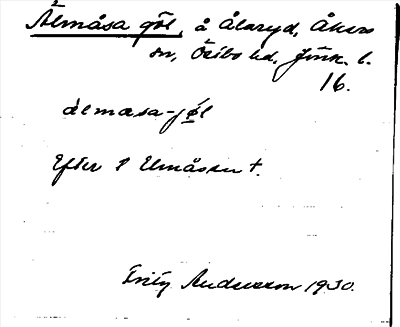 Älmåsa göl, å Ålaryd, Åkers
sn, Östbo hd, Jönk. l.
16.
älmasa-jøl
Efter Elmåsen †.
Andersson 1930.